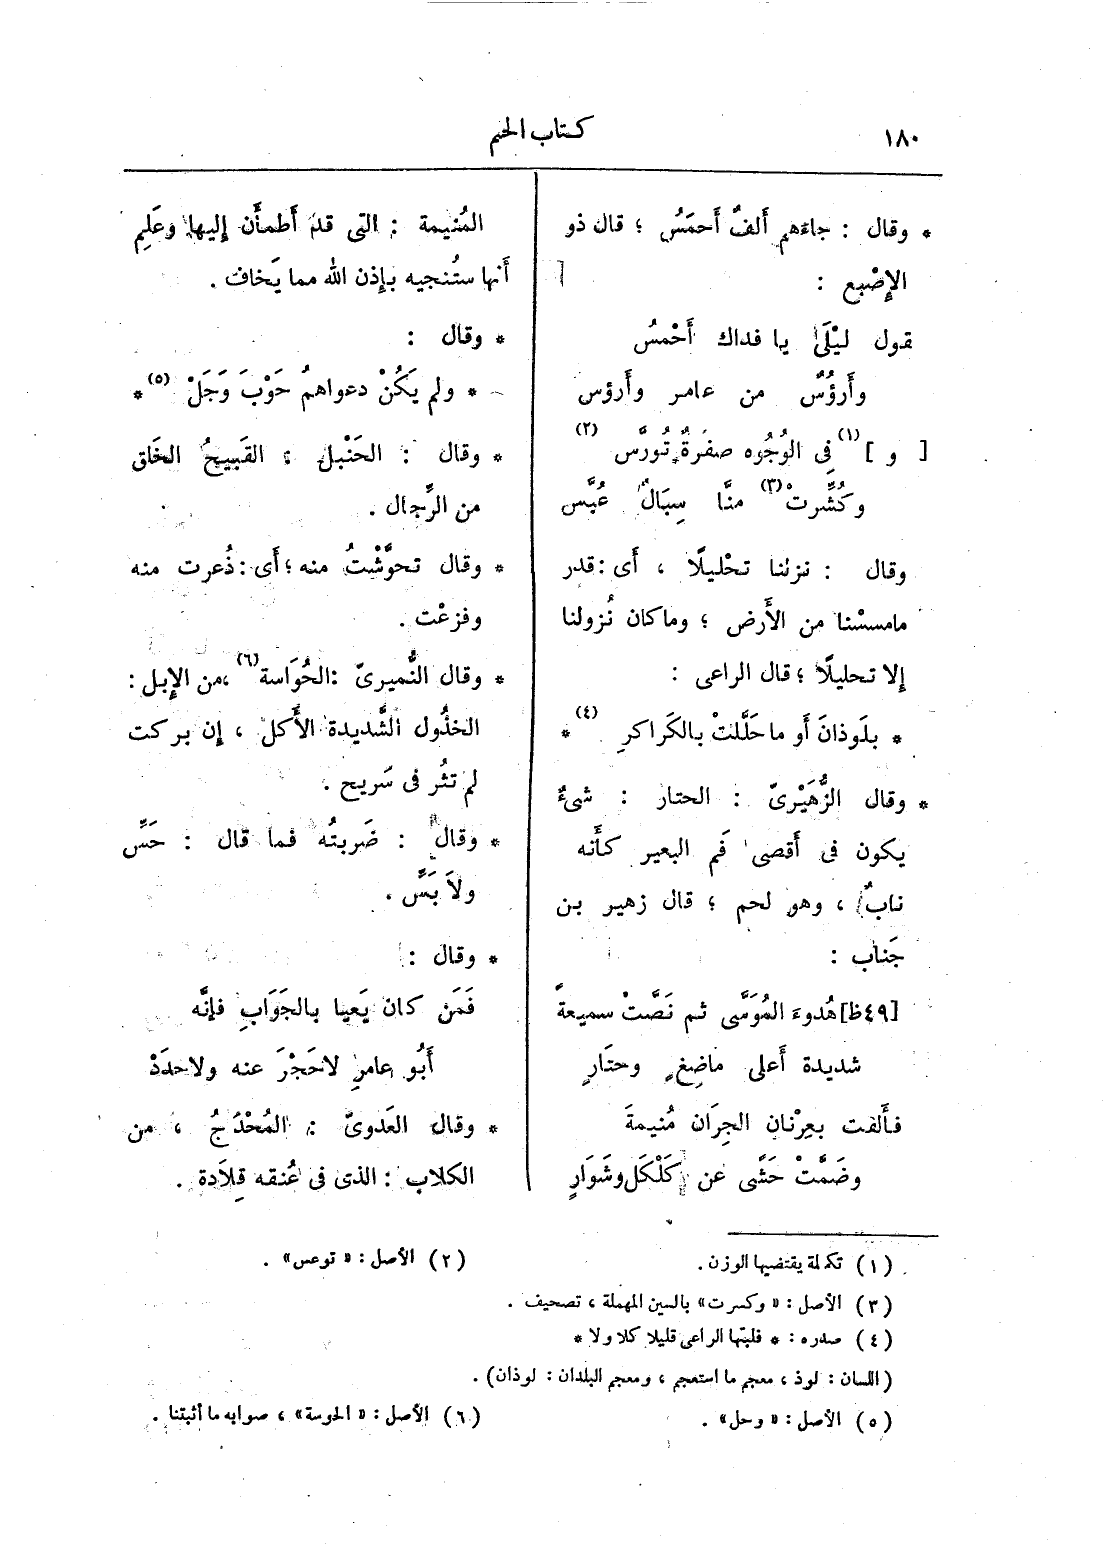 ١٨٠
كتاب الجيم
* وقال : جاءهم أَلفٌ أَحمَسُ ؛ قال ذو
الإِصْبع :
قول ليْلَى يا فداك أَحْمسُ
وأَرؤُسٌ من عامر وأَرؤس
[ و ] (١) فِى الوُجُوه صفرَةٌ تُورَّس (٢)
وكُشَّرتْ (٣) منَّا سِبَالٌ عُبَّس
وقال : نزلنا تحْليلًا ، أَى : قدر
مامسسْنا من الأَرض ؛ وماكان نُزولنا
إلا تحليلًا ؛ قال الراعى :
* بلَوذانَ أَو ما حَلَّلتْ بالكَراكرِ (٤) *
* وقال الزُّهَيْرىّ : الحتار : شىءٌ
يكون فى أَقصى فَم البعير كأَنه
نابٌ ، وهو لحم ؛ قال زهير بن
جَناب :
[٤٩ظ] هُدوءَ المُوَسَّى ثم نَصَّتْ سميعةً
شديدة أَعلى ماضِغٍ وحتَارٍ
فأَلفت بعِرْنان الجِرَان مُنيمةَ
وضَمَّتْ حَشًى عن كَلْكَل وشَوَارٍ
المُنيمة : التى قد أَطمأَن إِليها وعَلِم
أَنها ستُنجيه بإِذن الله مما يَخاف .
* وقال :
* ولم يَكُنْ دعواهمُ حَوْبَ وَجَلْ (٥) *
* وقال : الحَنْبل ؛ القَبيحُ الخَلق
من الرِّجال .
* وقال تحوَّشْتُ منه ؛ أَى : ذُعرت منه
وفزعْت .
* وقال النُّميرىّ : الحُوَاسة (٦) ، من الإِبل :
الخذُول الشَّديدة الأَكل ، إِن بركت
لم تثُر فى سَريح .
* وقال : ضَربتُه فما قال : حَسِّ
ولاَ بَسِّ .
* وقال :
فَمَن كان يَعيا بالجَوَابِ فإنَّه
أَبُو عامرِ لاحَجْرَ عنه ولاحدَدْ
* وقال العَدوىّ : المُحْدَجُ ، من
الكلاب : الذى فى عُنقه قِلاَدة .
(١) تكملة يقتضيها الوزن .
(٢) الأصل : « توعس» .
(٣) الأصل : « وكسرت» بالسين المهملة ، تصحيف .
(٤) صدره : * فلبثها الراعى قليلا كلا ولا *
(اللسان : لوذ ، معجم ما استعجم ، ومعجم البلدان : لوذان) .
(٥) الأصل : « وحل» .
(٦) الأصل : « الحوسة» ، صوابه ما أثبتنا .